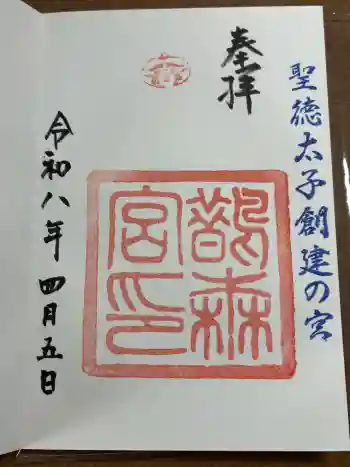 聖徳太子創建の宮
奉拝
鵲森
宮印
令和八年四月五日